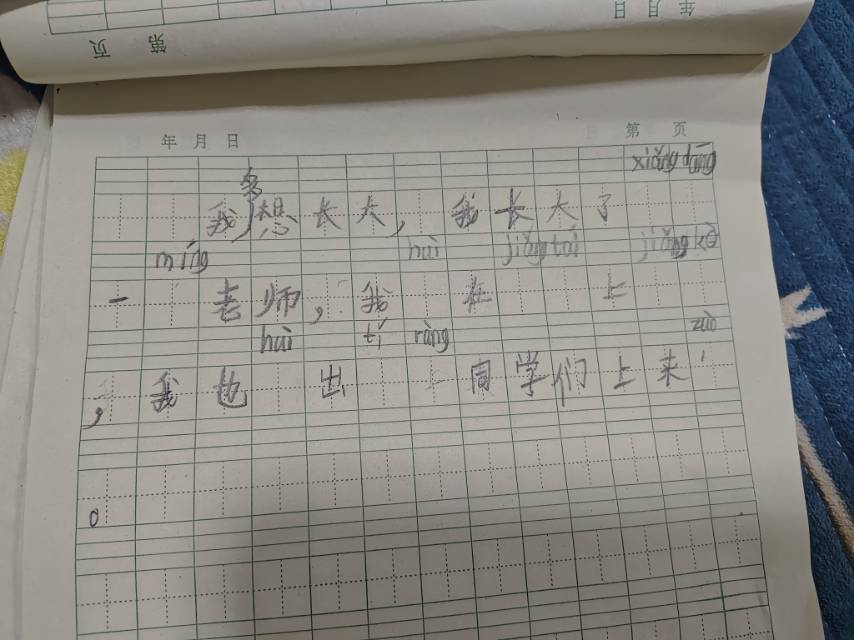 年 月 日
第 页
年 月 日 第 页
xiǎng dāng
我多想长大，我长大了
míng hùi jiǎng tái jiǎng kè
一老师，我在上
hùi tí ràng zuò
，我也出上同学们上来
。